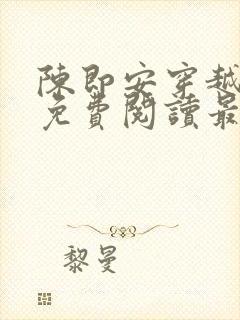 陳即安穿越
免費閱讀最
黎曼